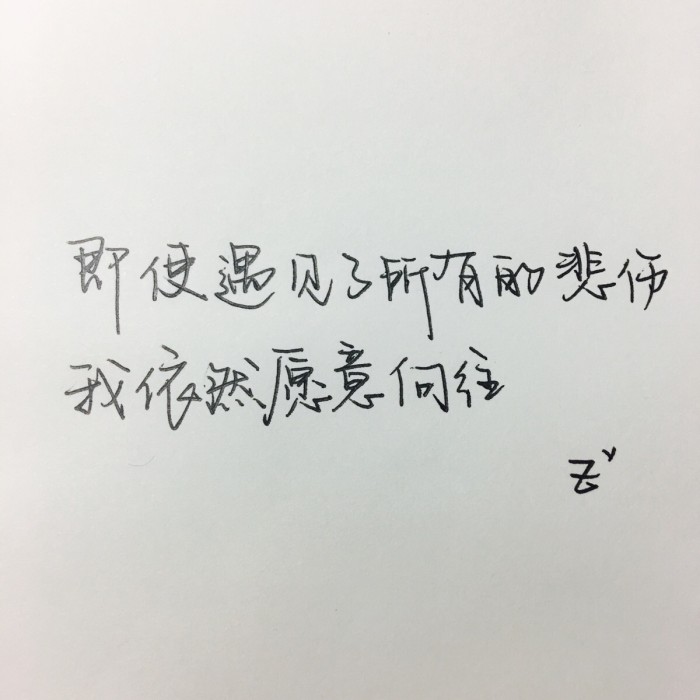 即使遇见了所有的悲伤
我依然愿意向往
Zy